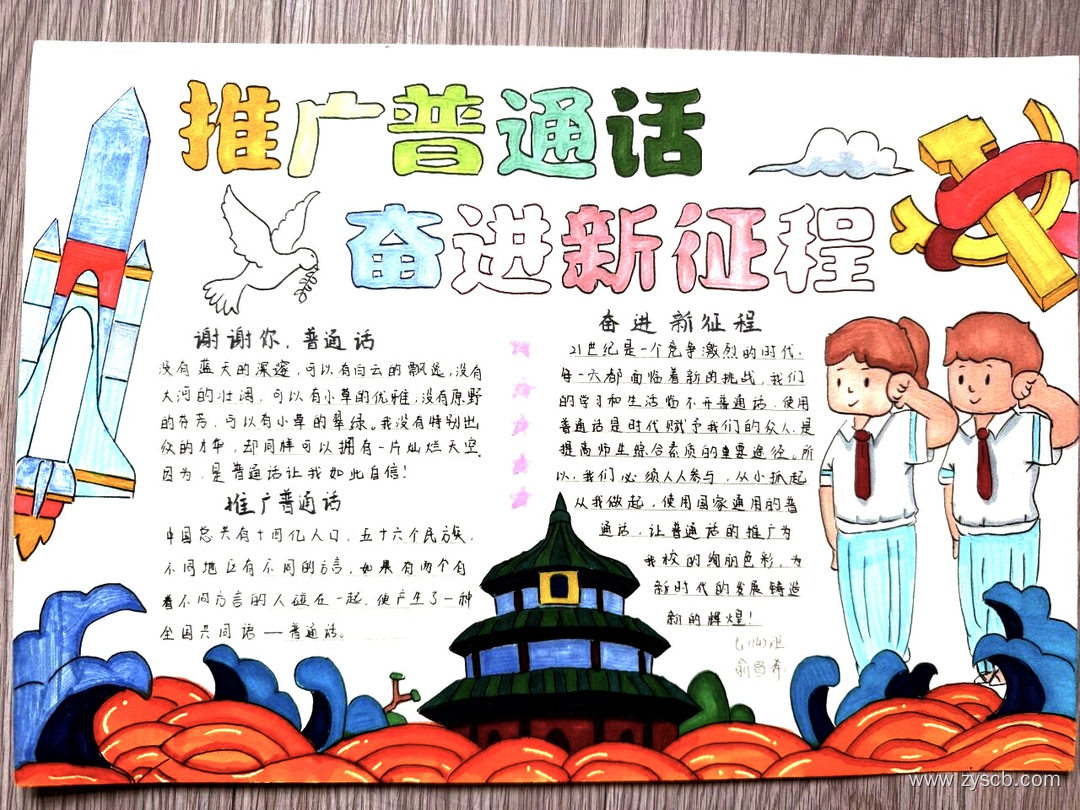 推广普通话
奋进新征程
谢谢你,普通话
没有蓝天的深邃,可以有白云的飘逸,没有
大河的壮阔,可以有小草的优雅,没有原野
的芬芳,可以有小草的翠绿。我没有特别出
众的才华,却同样可以拥有一片灿烂天空
因为,是普通话让我如此自信!
推广普通话
中国总共有十四亿人口,五十六个民族,
不同地区有不同的方言,如果有两个有
着不同方言的人碰在一起,便产生了一种
全国共同语——普通话。
奋进新征程
21世纪是一个竞争激烈的时代.
每一天都面临着新的挑战,我们
的学习和生活临不开普通话,使用
普通话是时代赋予我们的众人,是
提高师生综合素质的重要途径,所
以,我们必须人人参与,从小抓起
从我做起,使用国家通用的普
通话,让普通话的推广为
我校的绚丽色彩,为
新时代的发展铸造
新的辉煌!
www.zyscb.com